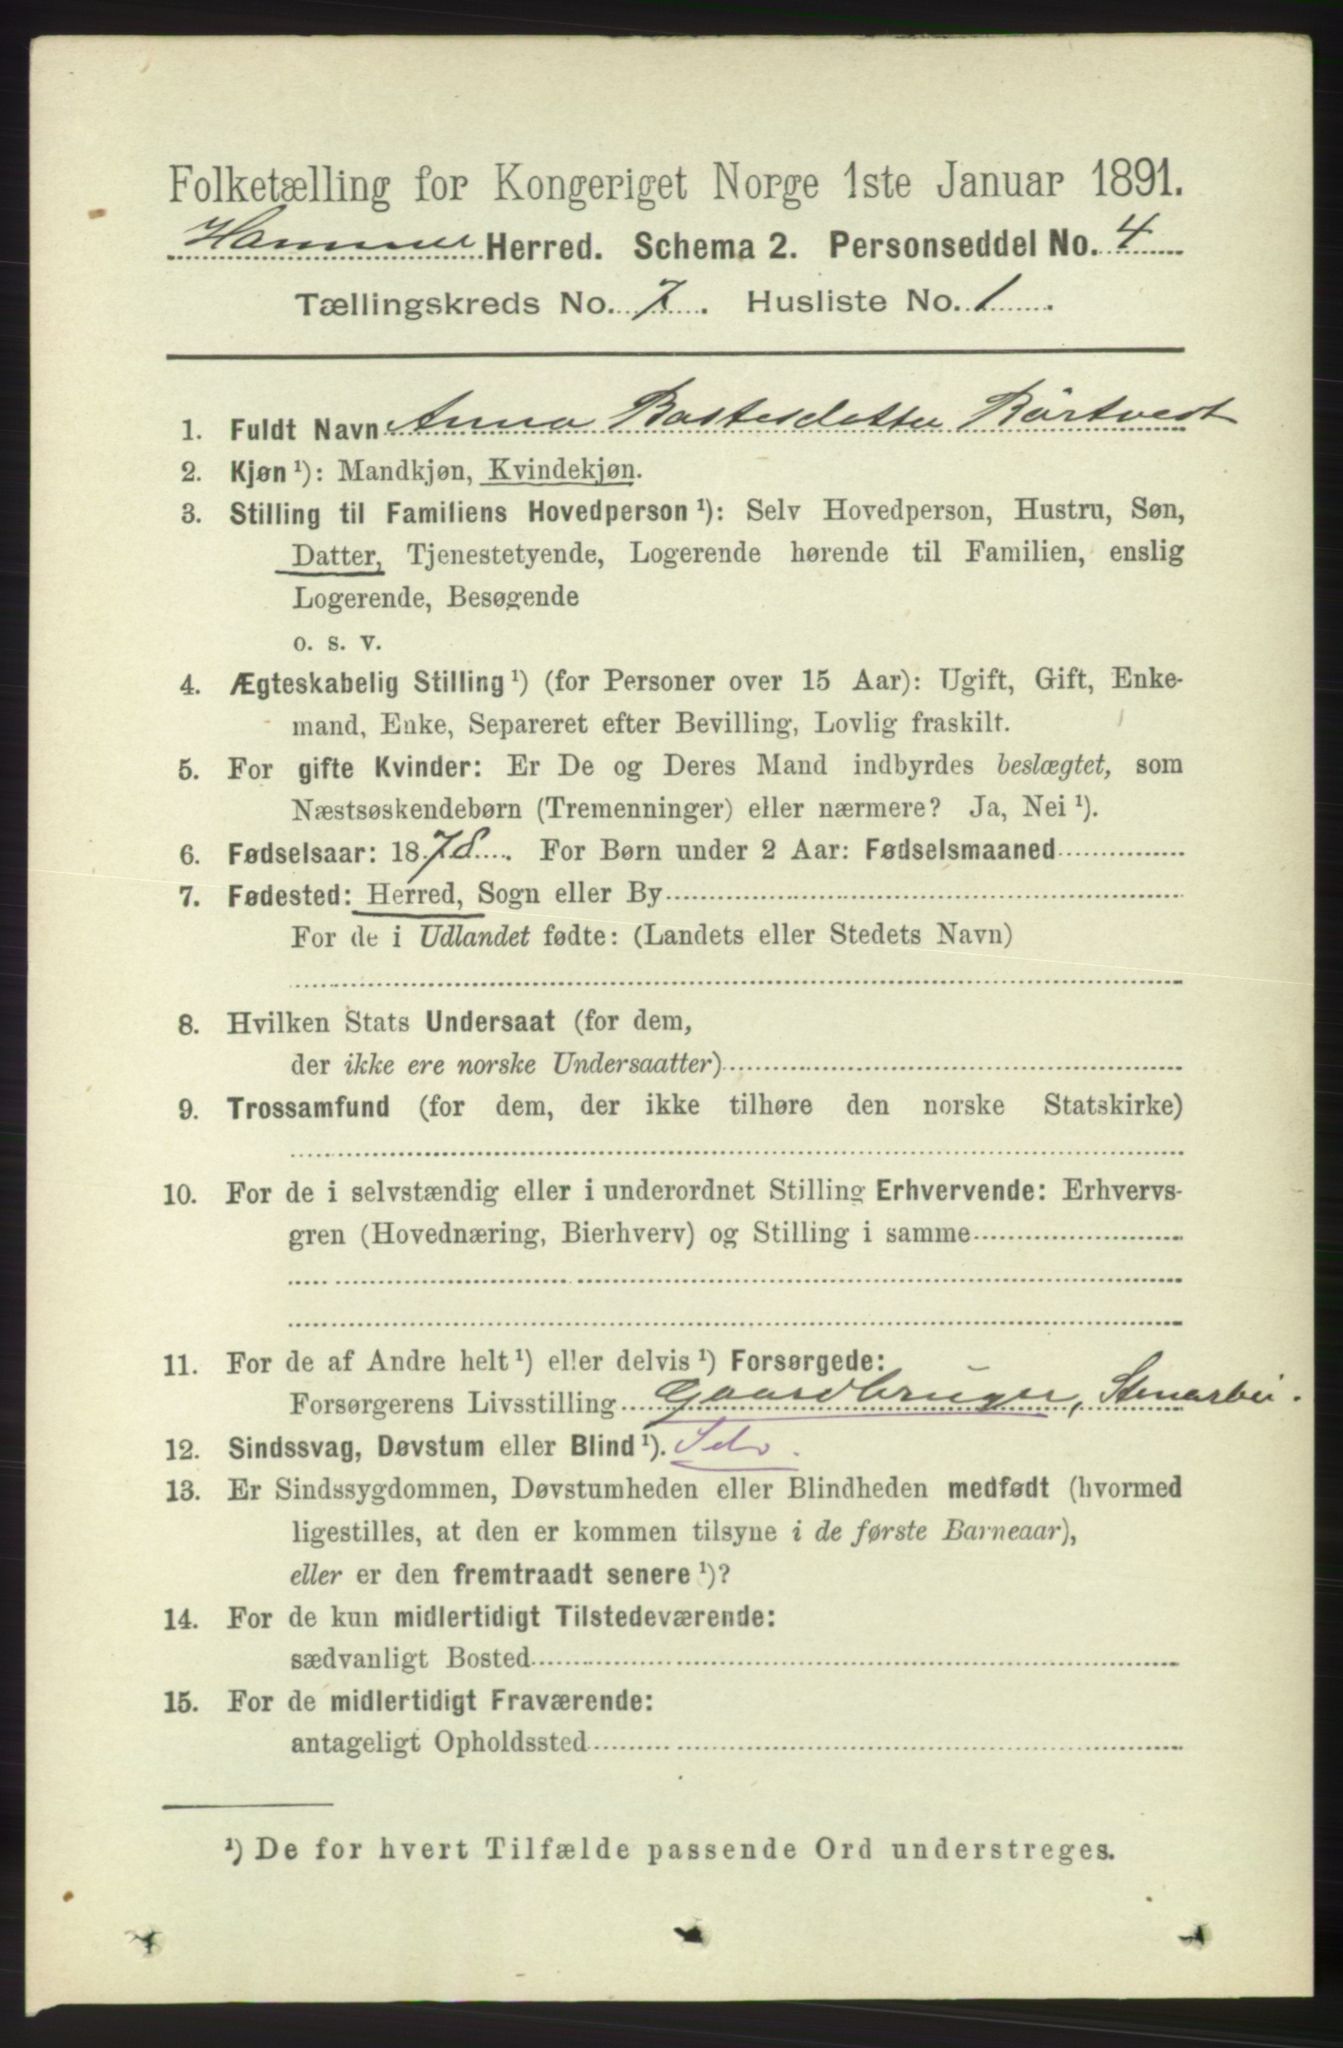 Folketælling for Kongeriget Norge 1ste Januar 1891.
Hammer Herred. Schema 2. Personseddel No. 4
Tællingskreds No. 7. Husliste No. 1.
1. Fuldt Navn Anna Bastesdatter Rörtveit
2. Kjøn ¹): Mandkjøn, Kvindekjøn.
3. Stilling til Familiens Hovedperson ¹): Selv Hovedperson, Hustru, Søn,
Datter, Tjenestetyende, Logerende hørende til Familien, enslig
Logerende, Besøgende
o. s. v.
4. Ægteskabelig Stilling ¹) (for Personer over 15 Aar): Ugift, Gift, Enke-
mand, Enke, Separeret efter Bevilling, Lovlig fraskilt.
5. For gifte Kvinder: Er De og Deres Mand indbyrdes beslægtet, som
Næstsøskendebørn (Tremenninger) eller nærmere? Ja, Nei ¹).
6. Fødselsaar: 1878. For Børn under 2 Aar: Fødselsmaaned
7. Fødested: Herred, Sogn eller By
For de i Udlandet fødte: (Landets eller Stedets Navn)
8. Hvilken Stats Undersaat (for dem,
der ikke ere norske Undersaatter)
9. Trossamfund (for dem, der ikke tilhøre den norske Statskirke)
10. For de i selvstændig eller i underordnet Stilling Erhvervende: Erhvervs-
gren (Hovednæring, Bierhverv) og Stilling i samme
11. For de af Andre helt ¹) eller delvis ¹) Forsørgede:
Forsørgerens Livsstilling Gaardbruger, Stenarbei.
12. Sindssvag, Døvstum eller Blind ¹). Selv.
13. Er Sindssygdommen, Døvstumheden eller Blindheden medfødt (hvormed
ligestilles, at den er kommen tilsyne i de første Barneaar),
eller er den fremtraadt senere ¹)?
14. For de kun midlertidigt Tilstedeværende:
sædvanligt Bosted
15. For de midlertidigt Fraværende:
antageligt Opholdssted
¹) De for hvert Tilfælde passende Ord understreges.